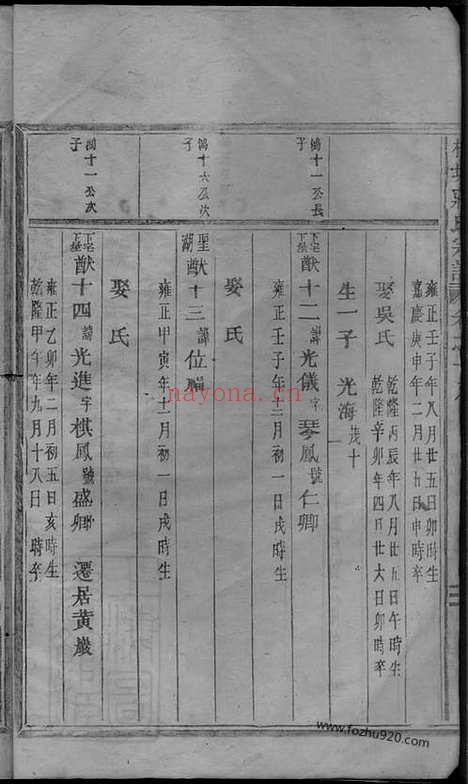 雍正壬子年八月廿五日卯時生
嘉慶庚申年二月廿五日申時卒
娶吳氏
乾隆丙辰年八月廿五日午時生
乾隆辛卯年四月廿六日卯時卒
生一子 光海 茂十
鴻十一公長子
猷十二 諱光儀字琴鳳號仁卿
雍正壬子年十二月初一日戌時生
娶氏
鴻十六公次子
聖湖 猷十三 諱位
雍正甲寅年十二月初一日戌時生
娶氏
鴻十一公次子
猷十四 諱光進字棋鳳號盛卿 遷居黃巖
雍正乙卯年二月初五日亥時生
乾隆甲午年九月十八日 時卒
nayona.cn
www.fozhu920.com